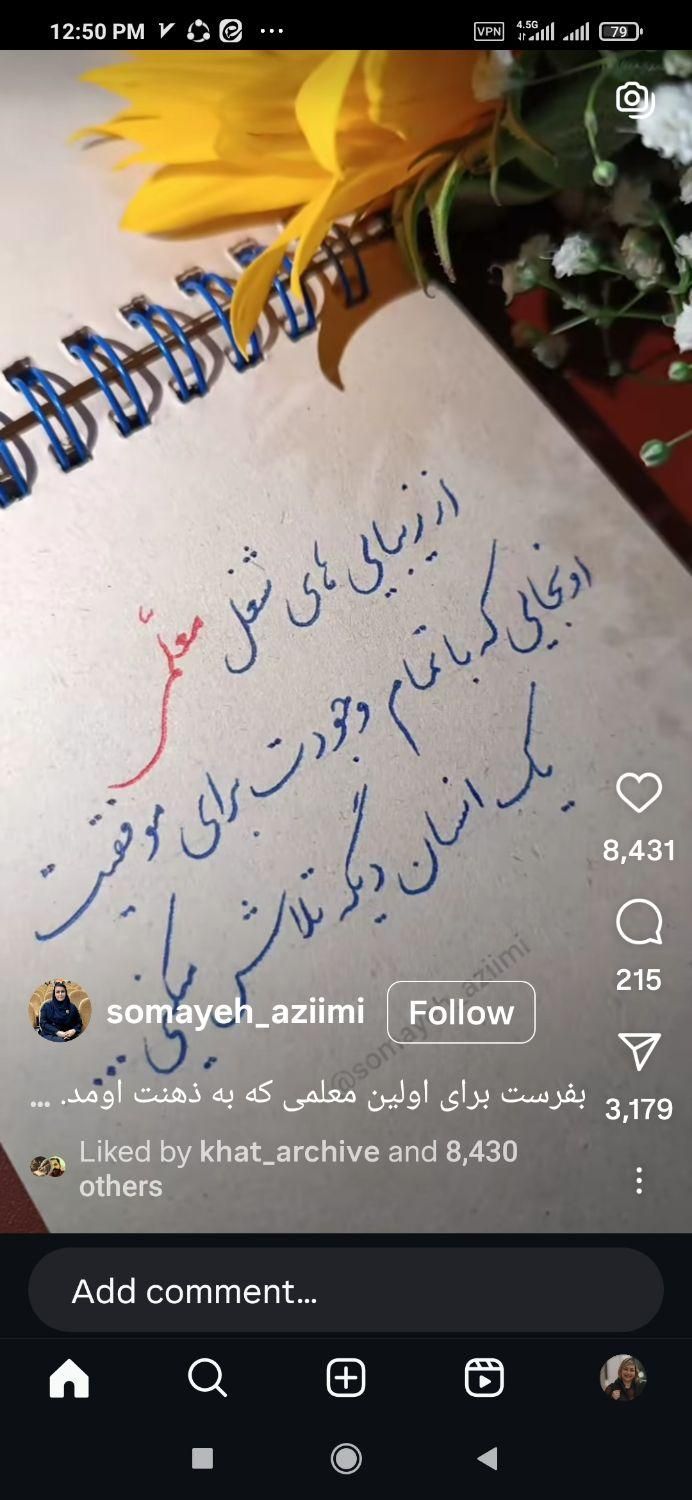 12:50 PM
VPN 4.5G 79
از زیبایی های شغل معلّمی
اونجایی که با تمام وجودت برای موفقیت
یک انسان دیگه تلاش میکنی...
@somayeh_aziimi
8,431
215
3,179
somayeh_aziimi Follow
بفرست برای اولین معلمی که به ذهنت اومد. ...
Liked by khat_archive and 8,430
others
Add comment...